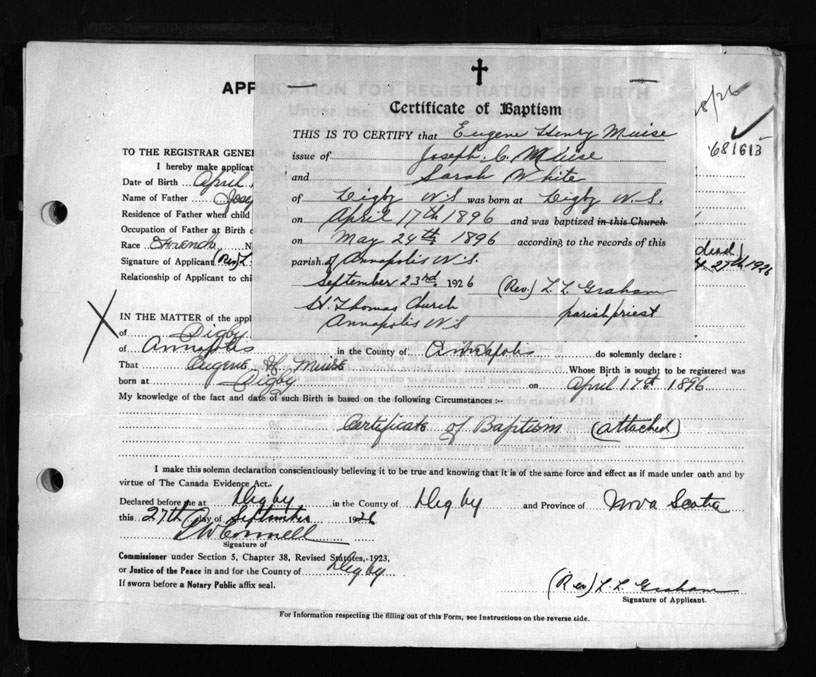 APPLICATION FOR REGISTRATION OF BIRTH
Under the
8/26
681613
Certificate of Baptism
THIS IS TO CERTIFY that Eugene Henry Muise
issue of Joseph. C. Muise
and Sarah White
of Digby N.S was born at Digby N.S.
on April 17th 1896 and was baptized in this Church
on May 24th 1896 according to the records of this
parish of Annapolis N.S.
September 23rd. 1926 (Rev.) L. L. Graham
St. Thomas Church parish priest
Annapolis N.S
TO THE REGISTRAR GENE
I hereby make applicat
Date of Birth April
Name of Father
Residence of Father when child
Occupation of Father at Birth
Race French N
Signature of Applicant (Rev) L
dead)
27th 1926
Relationship of Applicant to chi
IN THE MATTER of the appl
of Digby
of Annapolis in the County of Annapolis do solemnly declare :
That Eugene H. Muise Whose Birth is sought to be registered was
born at Digby on April 17th 1896
My knowledge of the fact and date of such Birth is based on the following Circumstances :-
Certificate of Baptism (attached)
I make this solemn declaration conscientiously believing it to be true and knowing that it is of the same force and effect as if made under oath and by
virtue of The Canada Evidence Act.
Declared before me at Digby in the County of Digby and Province of Nova Scotia
this 27th day of September 1926
Signature of
Commissioner under Section 5, Chapter 38, Revised Statutes, 1923.
or Justice of the Peace in and for the County of Digby
If sworn before a Notary Public affix seal.
(Rev) L. L. Graham
Signature of Applicant.
For Information respecting the filling out of this Form, see Instructions on the reverse side.